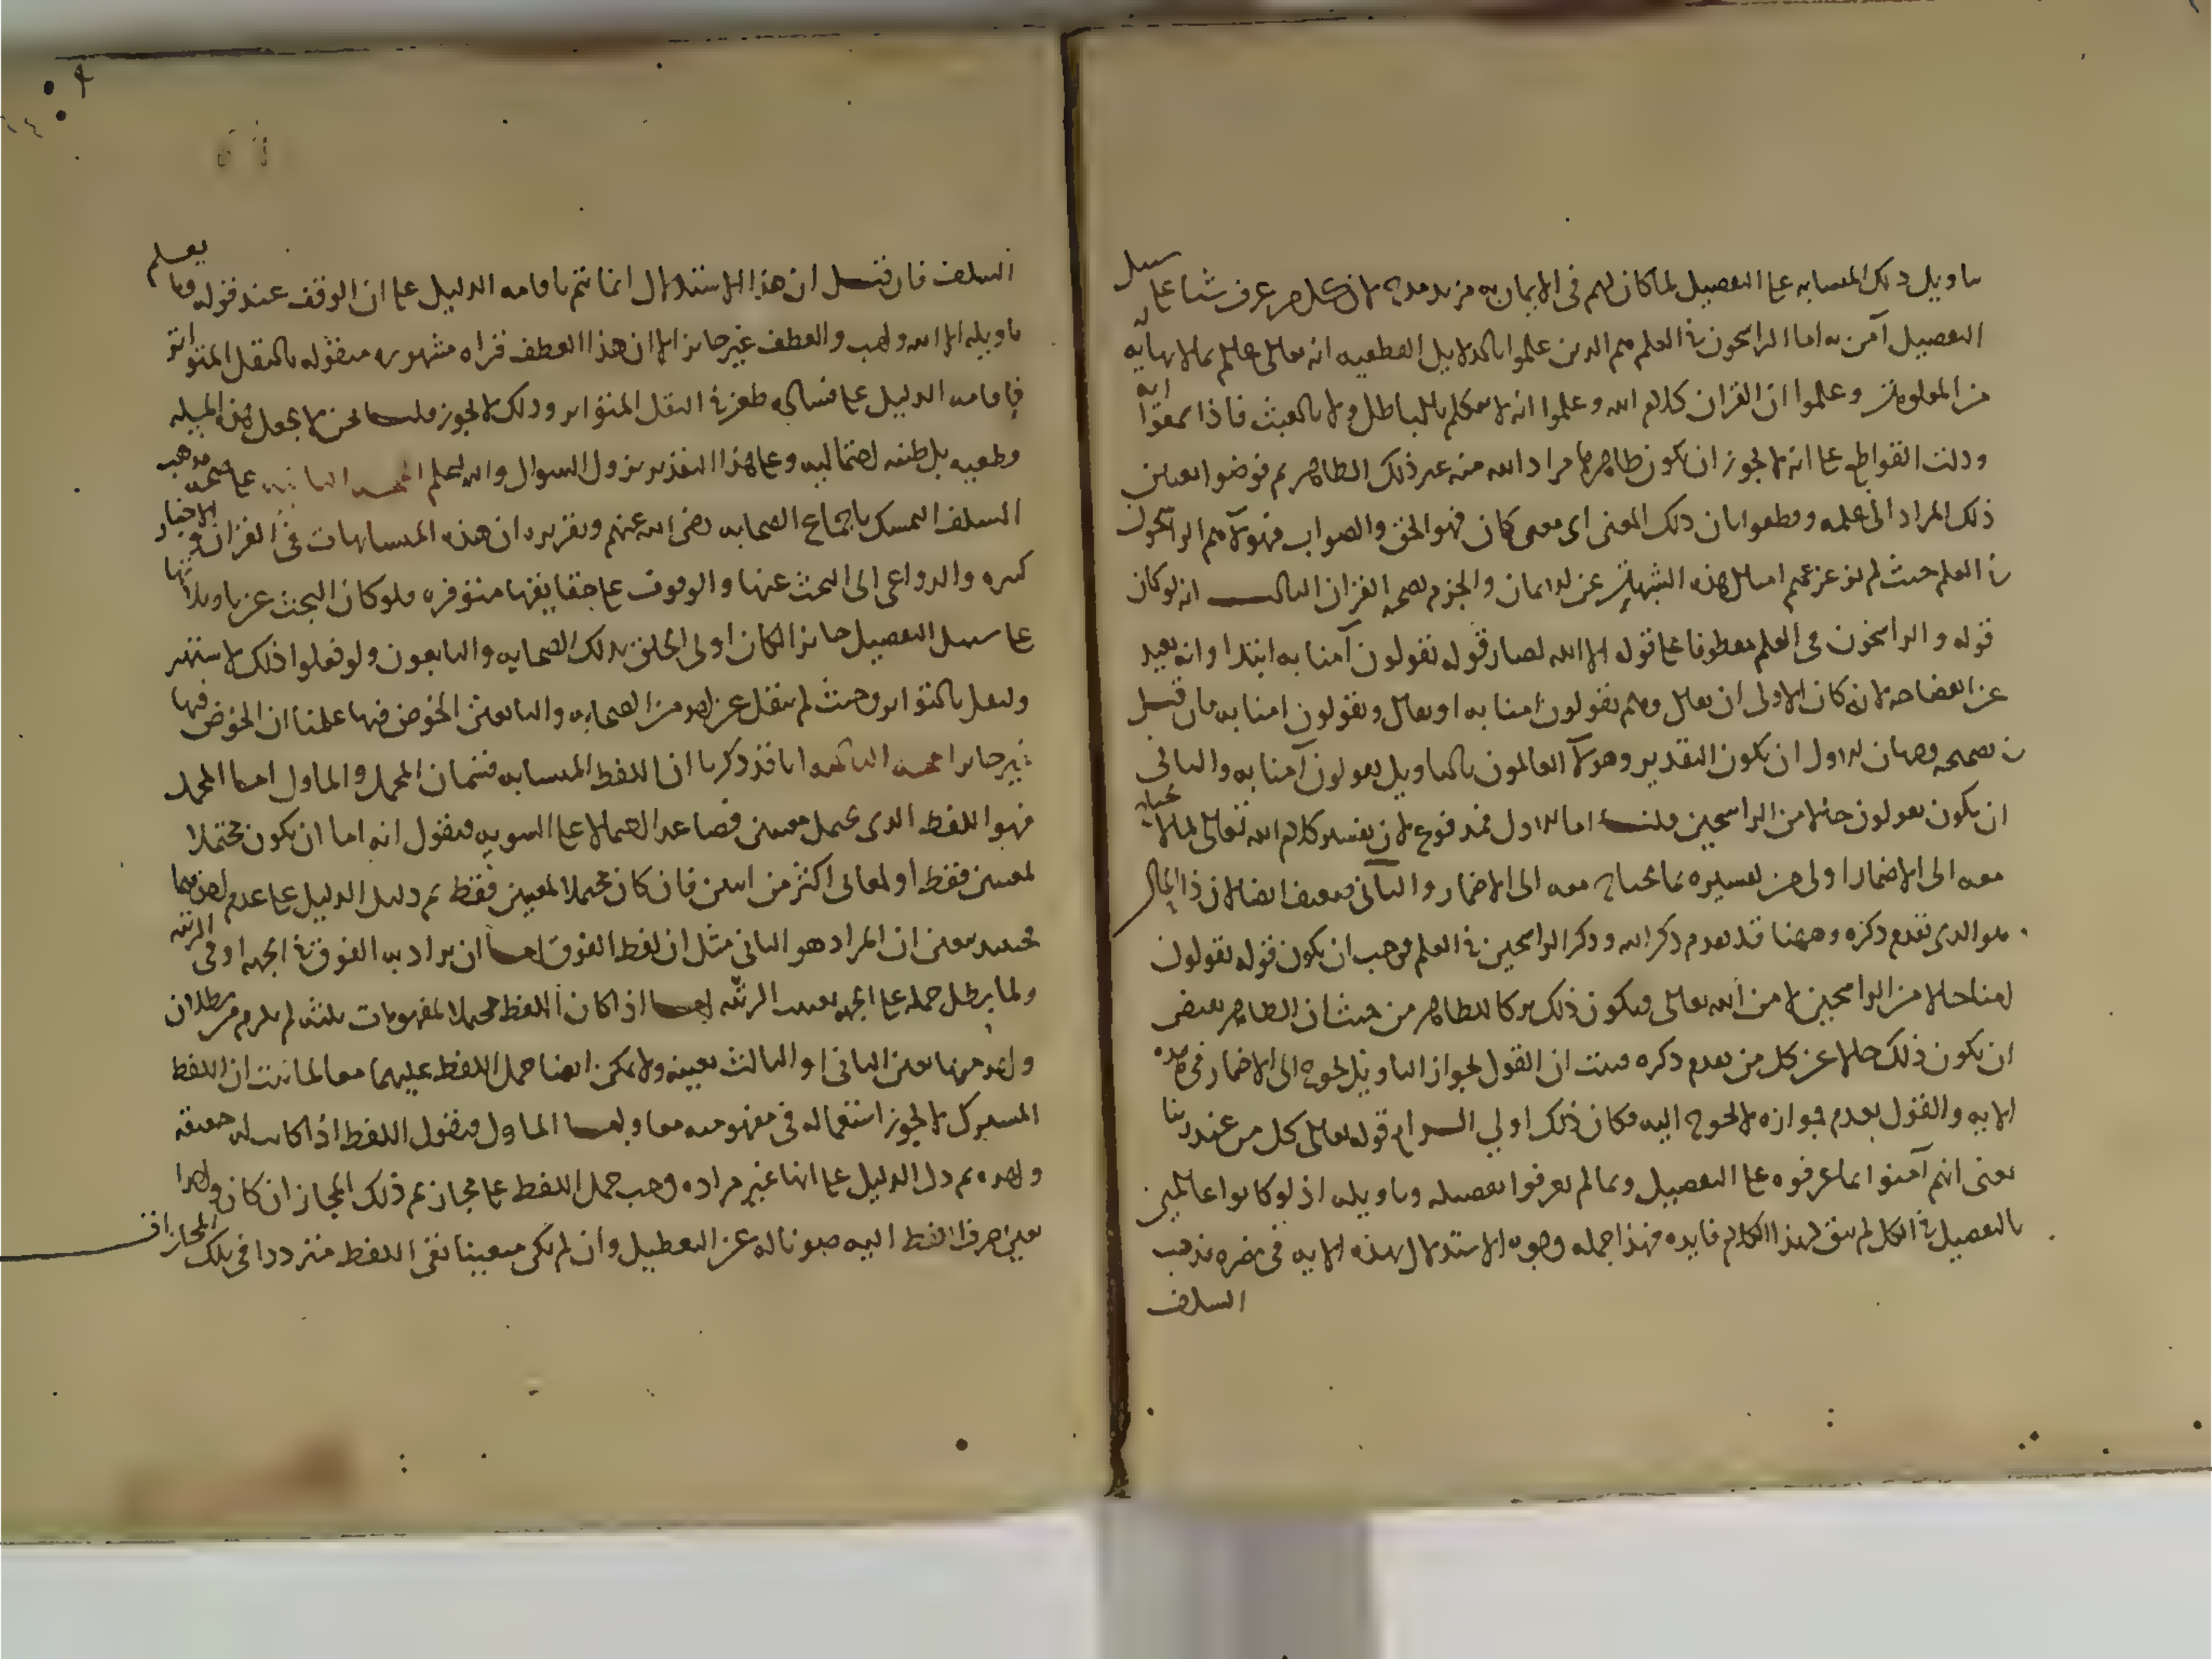 تاويل ذلك المتشابه على التفصيل لما كان لهم في الايمان به مزيد مدح لان كل من عرف شيا على سبيل
التفصيل آمن به اما الراسخون في العلم هم الذين علموا بالدلايل القطعيه انه تعالى عالم بما لا نهاية له
من المعلومات وعلموا ان القران كلام الله وعلموا انه لا يتكلم بالباطل ولا بالعبث فاذا سمعوا اية
ودلت القواطع على انه لا يجوز ان يكون ظاهرها مراد الله منه غير ذلك الظاهر ثم فوضوا تعيين
ذلك المراد الى علمه وقطعوا بان ذلك المعنى اى معنى كان فهو الحق والصواب فهولآ هم الراسخون
في العلم حيث لم يزعزعهم امثال هذه الشبهات عن الايمان والجزم بصحة القران الثالث انه لو كان
قوله والراسخون في العلم معطوفا على قوله الا الله لصار قوله يقولون آمنا به ابتدا وانه بعيد
عن الفصاحه لانه كان الاولى ان يقال وهم يقولون امنا به او يقال ويقولون امنا به فان قيل
في تصحيحه وجهان الاول ان يكون التقدير وهولآ العالمون بالتاويل يقولون آمنا به والثاني
ان يكون يقولون حالا من الراسخين قلت اما الاول فمدفوع لان تفسير كلام الله تعالى بما لا يحتاج
معه الى الاضمار اولى من تفسيره بما يحتاج معه الى الاضمار والثاني ضعيف ايضا لان ذا الحال
هو الذى تقدم ذكره وههنا قد تقدم ذكر الله وذكر الراسخين في العلم فوجب ان يكون قوله يقولون
امنا حالا من الراسخين لا من الله تعالى فيكون ذلك تركا للظاهر من حيث ان الظاهر يقتضى
ان يكون ذلك حالا عن كل من تقدم ذكره فثبت ان القول بجواز التاويل يحوج الى الاضمار في هذه
الايه والقول بعدم جوازه لا يحوج اليه فكان ذلك اولى الرابع قوله تعالى كل من عند ربنا
يعنى انهم آمنوا بما عرفوه على التفصيل وبما لم يعرفوا تفصيله وتاويله اذ لو كانوا عالمين
بالتفصيل في الكل لم يبق لهذا الكلام فايده فهذا جمله وجوه الاستدلال بهذه الايه في نصره مذهب
السلف
السلف فان قيل ان هذا الاستدلال انما يتم باقامه الدليل على ان الوقف عند قوله وما يعلم
تاويله الا الله واجب والعطف غير جايز الا ان هذا العطف قراه مشهوره منقوله بالنقل المتواتر
فاقامه الدليل على فساده طعن في النقل المتواتر وذلك لا يجوز قلت نحن لا نجعل هذه المسيله
قطعيه بل ظنيه احتماليه وعلى هذا التقدير يزول السوال والله اعلم الحجه الثانيه على صحه مذهب
السلف التمسك باجماع الصحابه رضى الله عنهم وتقريره ان هذه المتشابهات في القران والاخبار
كثيره والدواعى الى البحث عنها والوقوف على حقايقها متوفره فلو كان البحث عن تاويلاتها
على سبيل التفصيل جايزا لكان اولى الخلق بذلك الصحابه والتابعون ولو فعلوا ذلك لاشتهر
ولنقل بالتواتر وحيث لم ينقل عن احد من الصحابه والتابعين الخوض فيها علمنا ان الخوض فيها
غير جايز الحجه الثالثه انا قد ذكرنا ان اللفظ المتشابه قسمان المجمل والماول اما المجمل
فهو اللفظ الذى يحتمل معنيين فصاعدا احتمالا على السويه فنقول انه اما ان يكون محتملا
لمعنيين فقط او لمعانى اكثر من اثنين فان كان محتملا لمعنيين فقط ثم دلنا الدليل على عدم احدهما
فحينيذ يتعين ان المراد هو الثاني مثل ان لفظ الفوق اما ان يراد به الفوق في الجهه او في الرتبه
ولما بطل حمله على الجهه تعينت الرتبه اما اذا كان اللفظ محتملا لمفهومات ثلثه لم يلزم من بطلان
واحد منها تعين الثاني او الثالث بعينه ولا يمكن ايضا حمل اللفظ عليهما معا لما ثبت ان اللفظ
المشترك لا يجوز استعماله في مفهوميه معا واما الماول فنقول اللفظ اذا كانت له حقيقه
واحده ثم دل الدليل على انها غير مراده وجب حمل اللفظ على مجازه ثم ذلك المجاز ان كان واحدا
تعين صرف اللفظ اليه صونا له عن التعطيل وان لم يكن متعينا بقى اللفظ مترددا في تلك المجازات